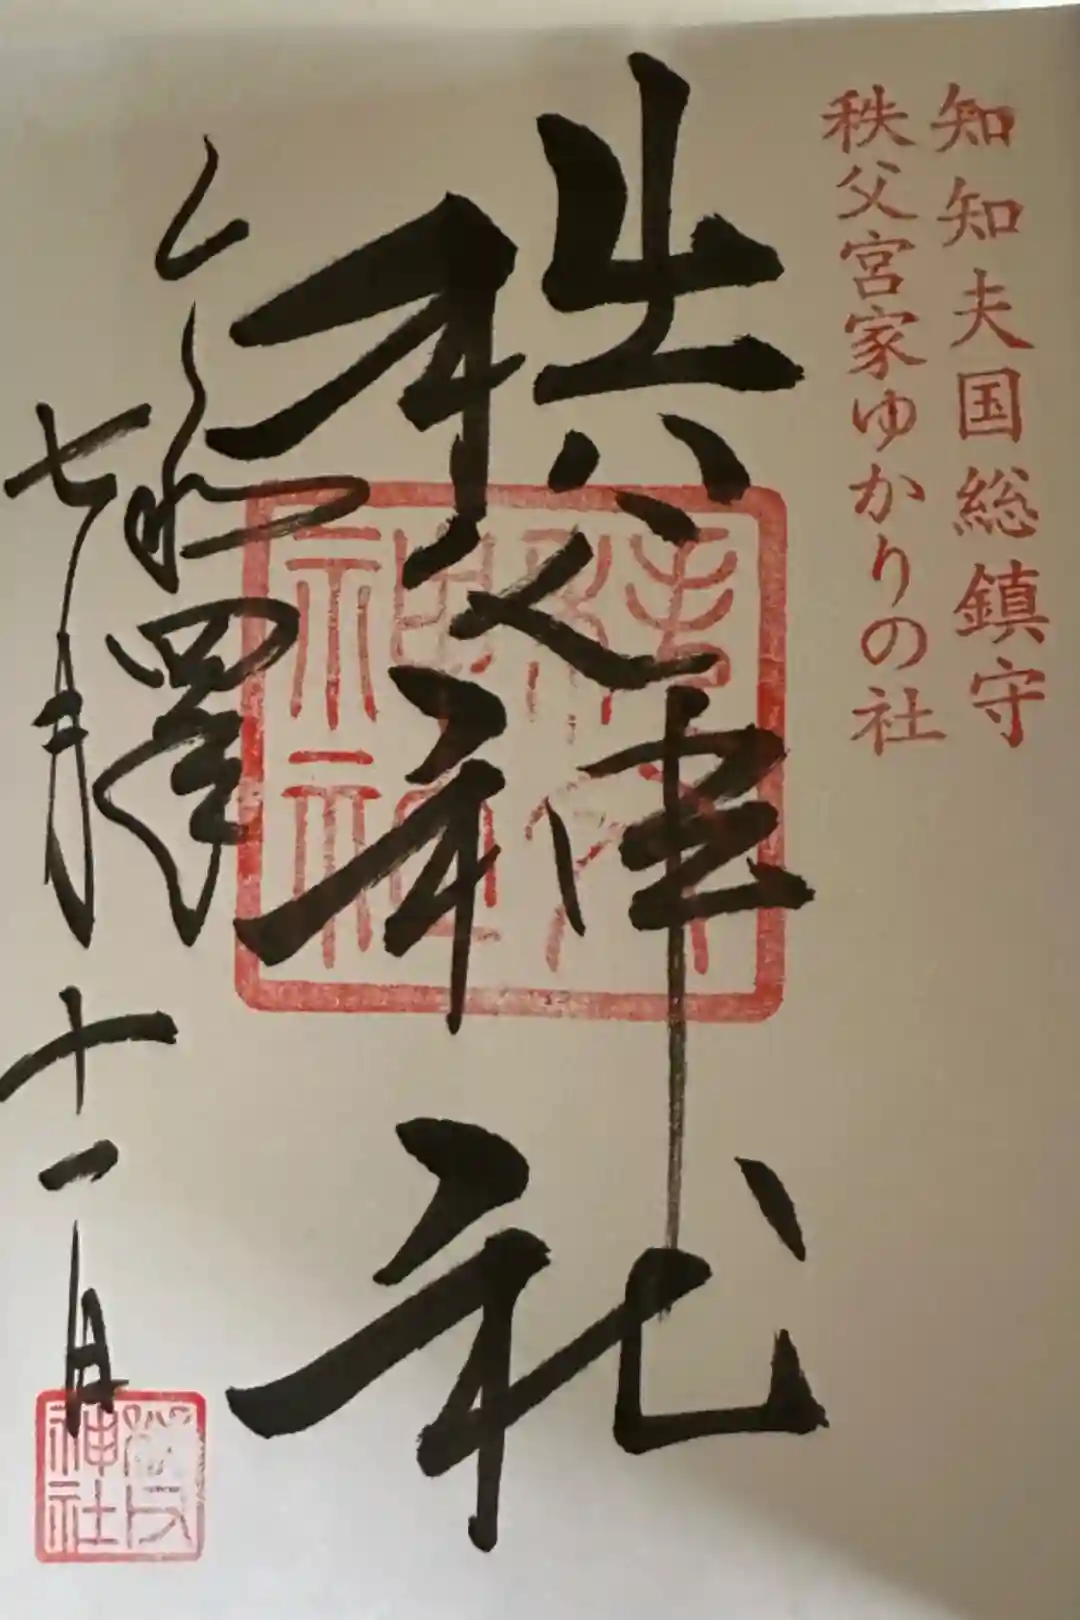 知知夫国総鎮守
秩父宮家ゆかりの社
秩父神社
七月十一日
秩父
神社